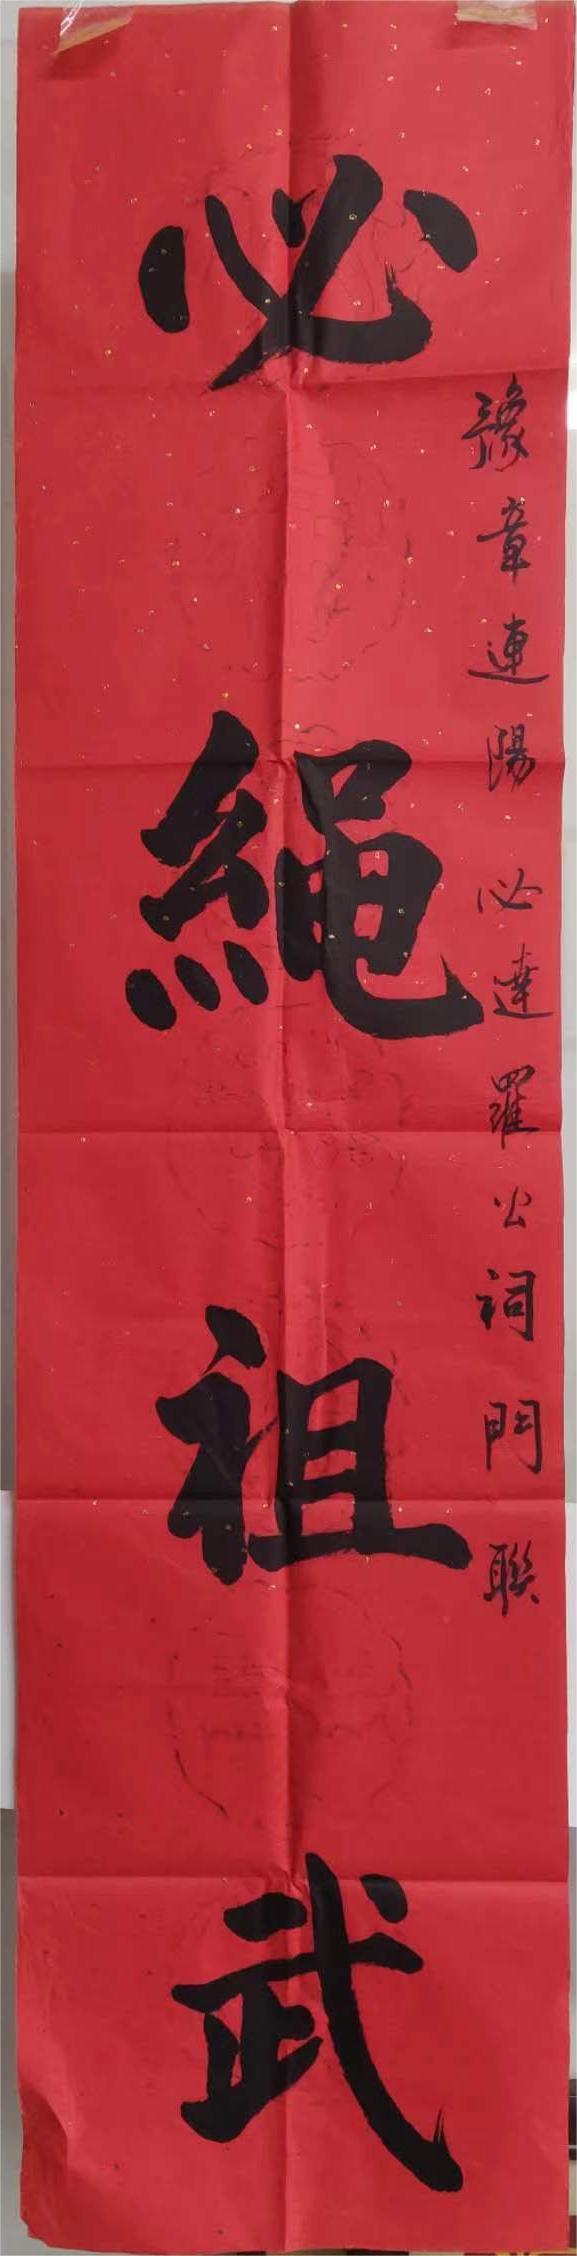 豫章連陽 必達羅公祠門聯
必繩祖武